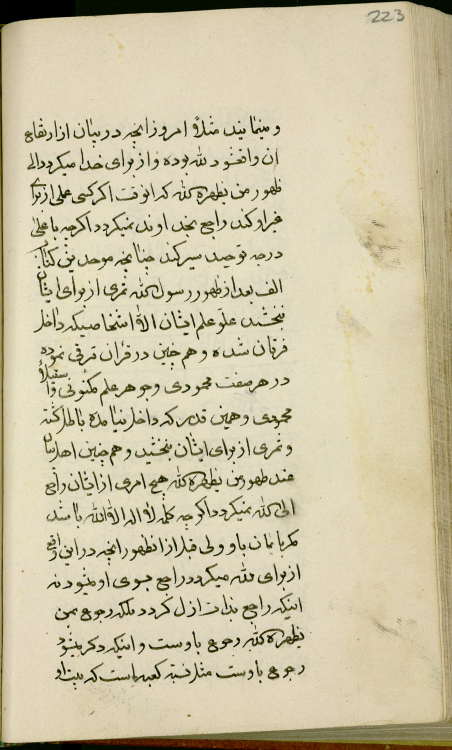 223
و مینمایند مثلاً امروز آنچه در بیان از ارتفاع
آن واقع شود لله بوده و از برای خدا میگردد الی
ظهور من یظهره الله که آنوقت اگر کسی عملی از برای
غیر او کند راجع بخداوند نمیگردد اگرچه باعلی
درجه توحید سیر کند چنانچه موحدین کتاب
الف بعد از ظهور رسول الله ثمری از برای ایشان
نبخشید علو علم ایشان الا اشخاصیکه داخل
فرقان شده و هم چنین در قرآن فرقی نموده
در هر صفت محمودی و جوهر علم مکنونی و استقلال
محمودی و همین قدر که داخل نیامده باطل گشته
و ثمری از برای ایشان نبخشید و هم چنین اهل بیان
عند ظهور من یظهره الله هیچ امری از ایشان راجع
الی الله نمیگردد اگرچه کلمه لا اله الا الله باشد
مگر بایمان باو ولی قبل از ظهور آنچه در این واقع
از برای لله میگردد راجع بسوی او میشود نه
اینکه راجع بذات ازل گردد بلکه رجوع بمن
یظهره الله رجوع باوست و اینکه ذکر میشود
رجوع باوست مثل نسبة کعبه است که بیت او